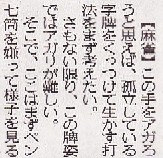 【麻雀】この手をアガろ
うと思えば、孤立している
字牌をくっつけて生かす打
法をまず考えたい。
さもない限り、この牌姿
ではアガリが難しい。
そこで、ここはまずペン
七筒を嫌って様子を見る